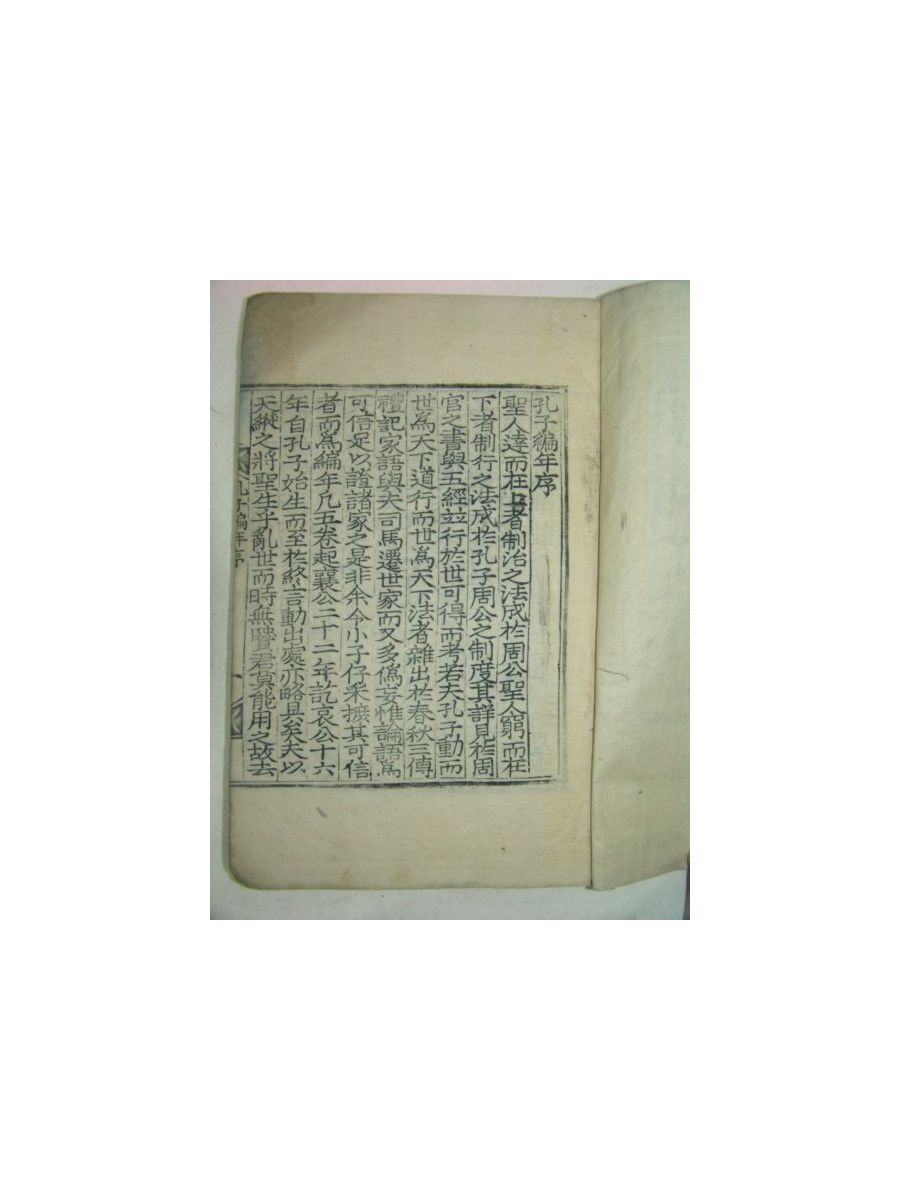 孔子編年序
聖人達而在上者制治之法成於周公聖人窮而在
下者制行之法成於孔子周公之制度其詳見於周
官之書與五經並行於世可得而考若夫孔子動而
世為天下道行而世為天下法者雜出於春秋三傳
禮記家語與夫司馬遷世家而又多偽妄惟論語為
可信足以證諸家之是非余令小子仔采摭其可信
者而為編年凡五卷起襄公二十二年訖哀公十六
年自孔子始生而至於終言動出處亦略具矣夫以
天縱之將聖生乎亂世而時無賢君莫能用之故去
孔子編年序